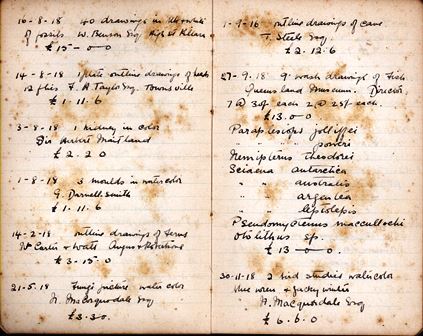 16-8-18 40 drawings in
of fossils W. Benson Esq High St
£15-0-0
14-8-18 1 plate outline drawings of heads
12 flies F. H Taylor Esq. Townsville
£1.11.6
3-8-18 1 kidney in color
Sir Herbert Maitland
£2.2.0
1-8-18 3 moulds in watercolor
G. Darnell Smith
£1.11.6
14-2-18 outline drawings of ferns
Mr Carter & Watts Angus & Robertsons
£3-15.0
21.5.18 Fungi picture water color
N. Macquodale Esq
£3.3.0.
1-9-16 outline drawings of cane
T. Steele Esq.
£2.12.6
27-9.18 9 wash drawings of Fish
Queensland Museum. Director
7 @ 30/- each 2 @ 25/- each.
£13.0.0
Paraplesiops jolliffei
" poweri
Nemipterus theodorei
Sciaena antarctica
" " australis
" " argentea
" " leptolepis
Pseudomycterus maccullochi
Otolithus sp.
£13-0-0.
30-11-18 2 bird studies watercolor
blue wren & jacky winter
N. Macquodale Esq
£6.6.0